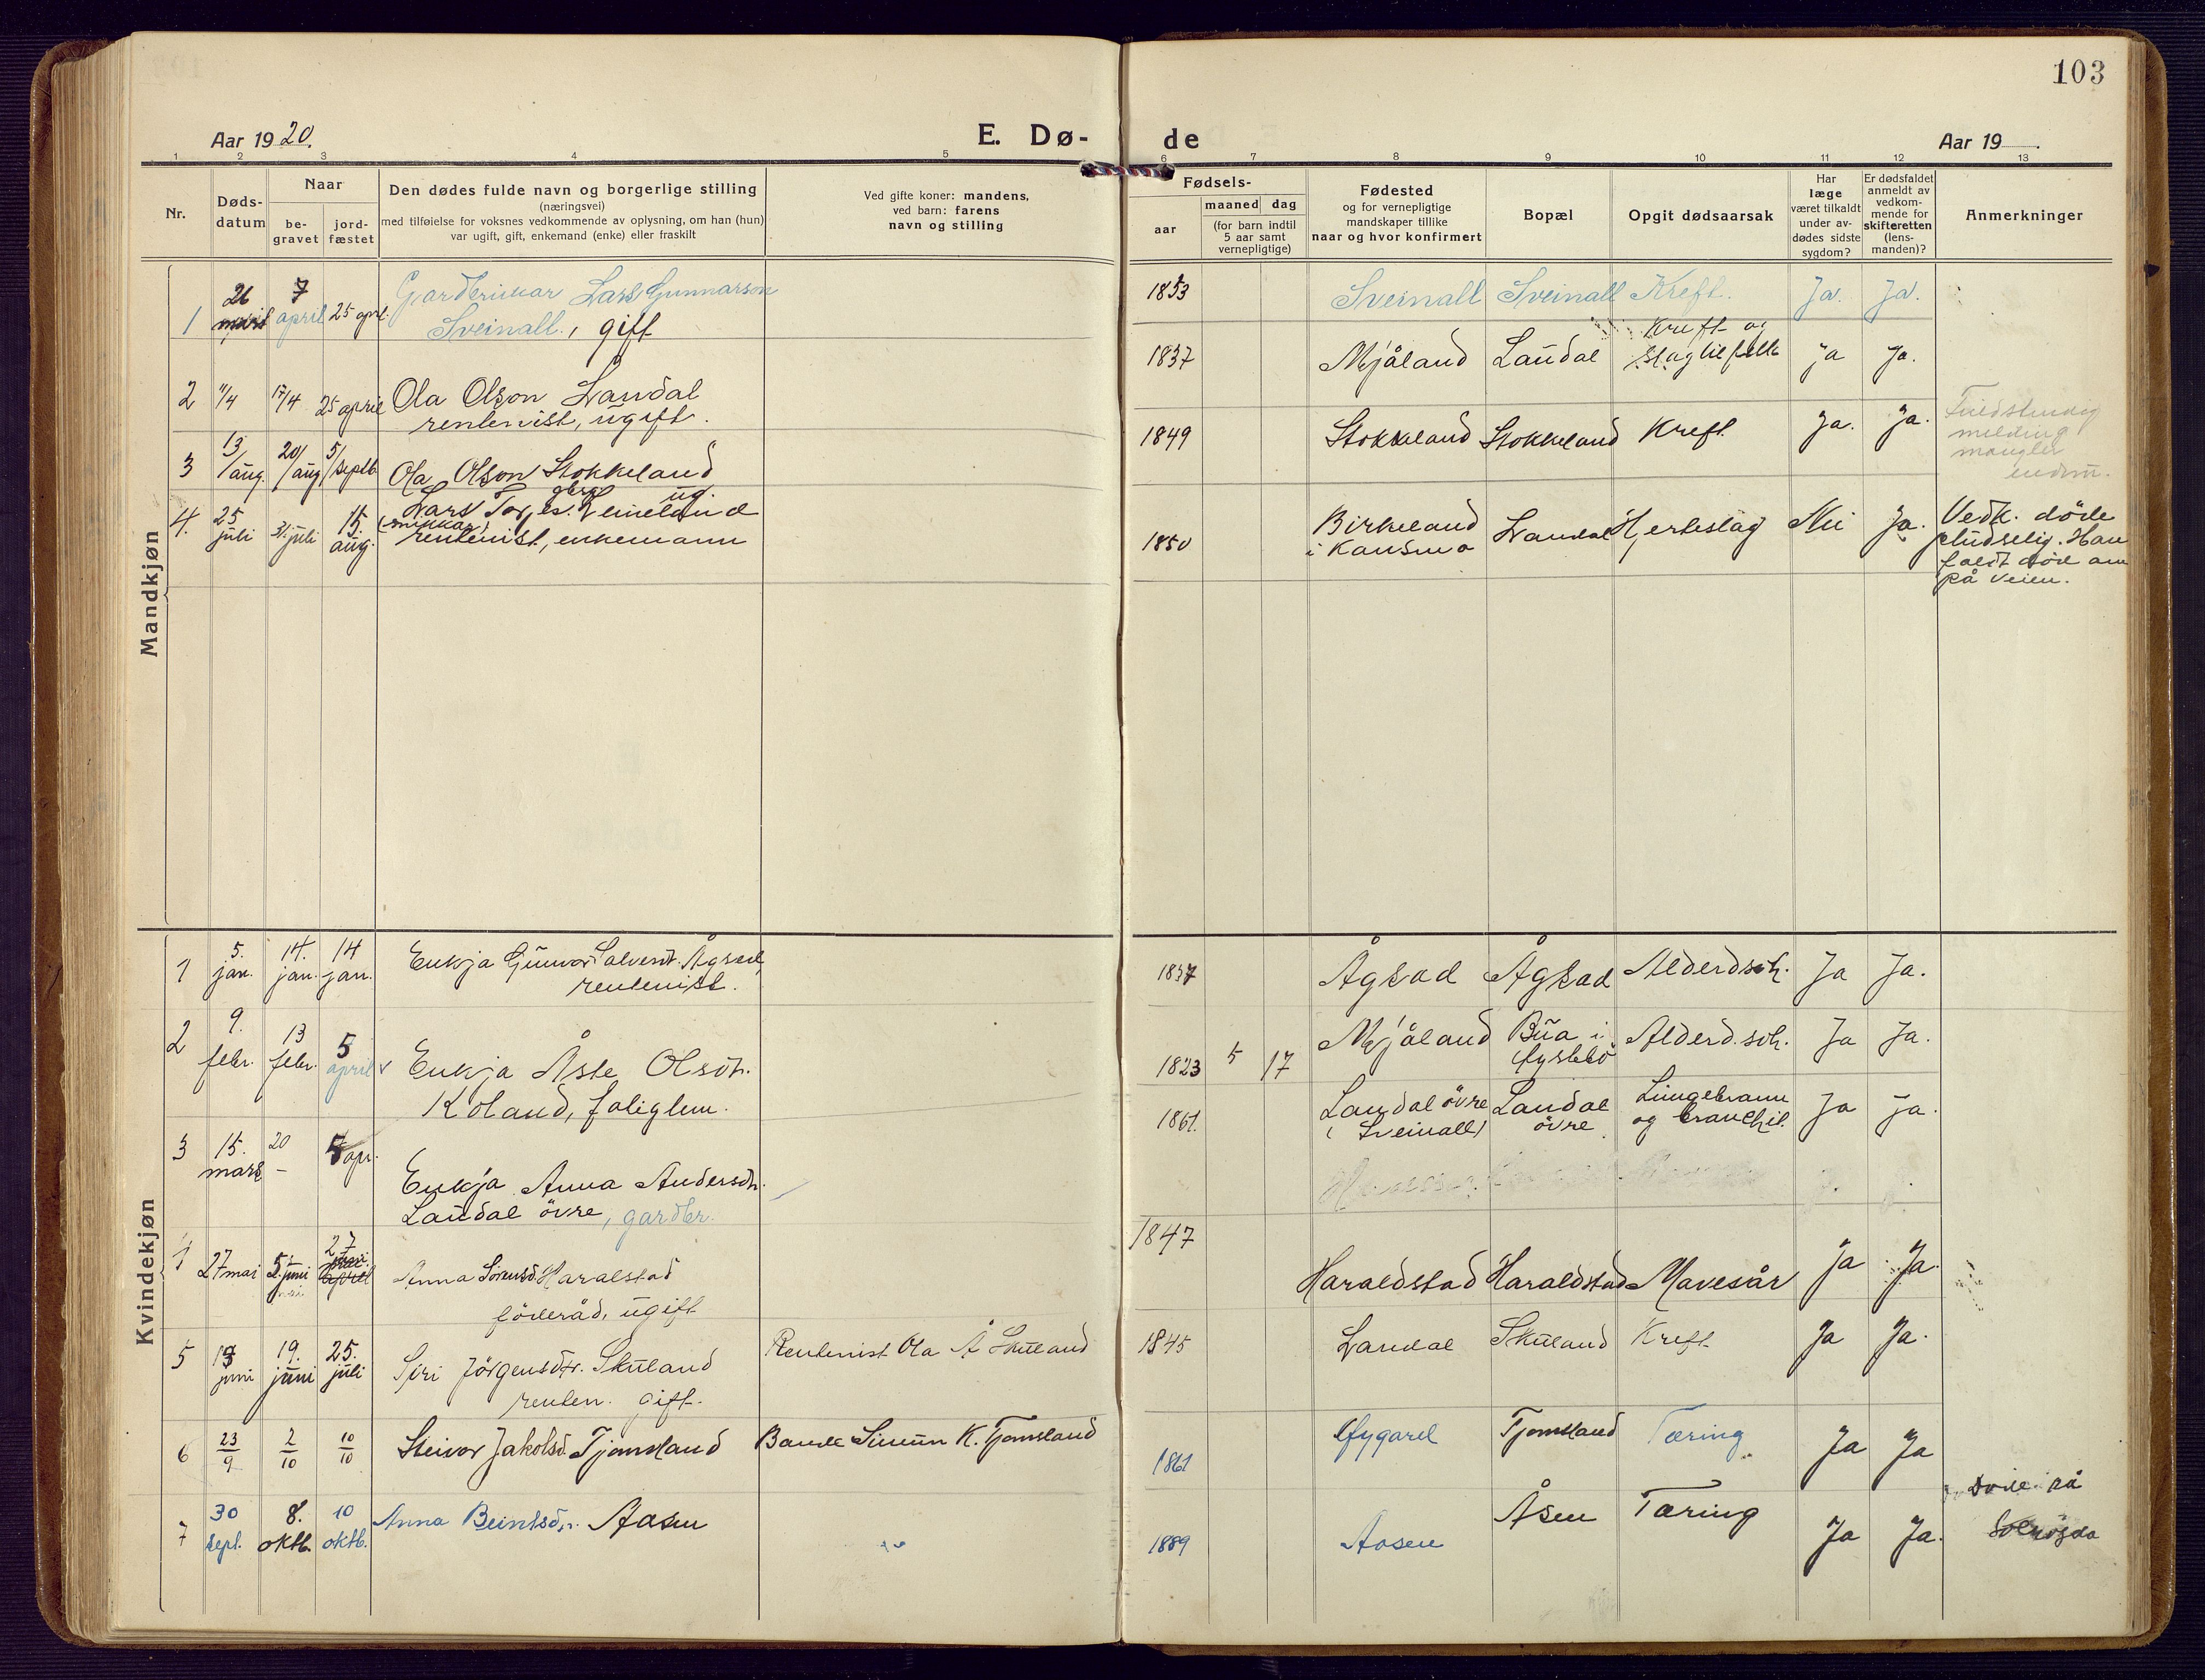 103
Aar 1920.
E. Dø-
de
Aar 19
1 2 3 4 5 6 7 8 9 10 11 12 13
Nr.
Døds-
datum
Naar
be-
gravet
jord-
fæstet
Den dødes fulde navn og borgerlige stilling
(næringsvei)
med tilføielse for voksnes vedkommende av oplysning, om han (hun)
var ugift, gift, enkemand (enke) eller fraskilt
Ved gifte koner: mandens,
ved barn: farens
navn og stilling
Fødsels-
aar
maaned dag
(for barn indtil
5 aar samt
vernepligtige)
Fødested
og for vernepligtige
mandskaper tillike
naar og hvor konfirmert
Bopæl
Opgit dødsaarsak
Har
læge
været tilkaldt
under av-
dødes sidste
sygdom?
Er dødsfaldet
anmeldt av
vedkom-
mende for
skifteretten
(lens-
manden)?
Anmerkninger
Mandkjøn
1 26 7 april 25 april Lars Gunnarson
Sveinall, gift
1853 Sveinall Sveinall Kreft. Ja. Ja.
2 11/4 17/4 25 april Ola Olson Laudal
rentenist, ugift.
1837 Mjåland Laudal Kreft og
slagtilfelle ja ja.
3 13/aug. 20/aug 5/septb Ola Olson Stokkeland
ug.
1849 Stokkeland Stokkeland Kreft Ja. Ja.
melding
mangler
4. 25 juli 31 juli 15. aug. Lars
rentenist, enkemann
1850 Birkeland Laudal Hjerteslag Nei Ja. Vedk. døde
pludselig. Han
faldt död om
på veien.
Kvindekjøn
1 5. jan. 14. jan. 14 jan. Enkja Gunvor Salvesdt.
rentenist.
1837 Ågsad Ågsad Alderdsch. Ja Ja.
2 9. febr. 13 febr. 5 april Enkja Åste Olsdt.
Koland, fatiglem.
1823 5 17 Mjåland Bua i Alderd.sch. Ja Ja.
3 15. mars 20 - 5 apr. Enkja Anna Andersdt.
Laudal övre, gardbr.
1861. Laudal övre
(Sveinall)
Laudal
övre
Lungebetenn
og Ja Ja.
4 27 mai 5. juni 27 Anna Sörensd. Haralstad
föderåd, ugift
1847 Haraldstad Haraldstad Mavesår Ja Ja.
5 juni 19. juni 25. juli Siri Jörgensdtr. Skuland
renten. gift.
Rentenist Ola Å Skuland
1845 Laudal Skuland Kreft Ja Ja.
6 23/9 2/10 10/10 Steivor Jakobsd. Tjomsland
Bonde Simun K. Tjomsland
1861 Tjomsland Tæring Ja Ja
7 30 sept. 8. oktb. 10 oktb. Anna Beintsdtr. Aasen
1889 Aasen Åsen Tæring Ja Ja. på